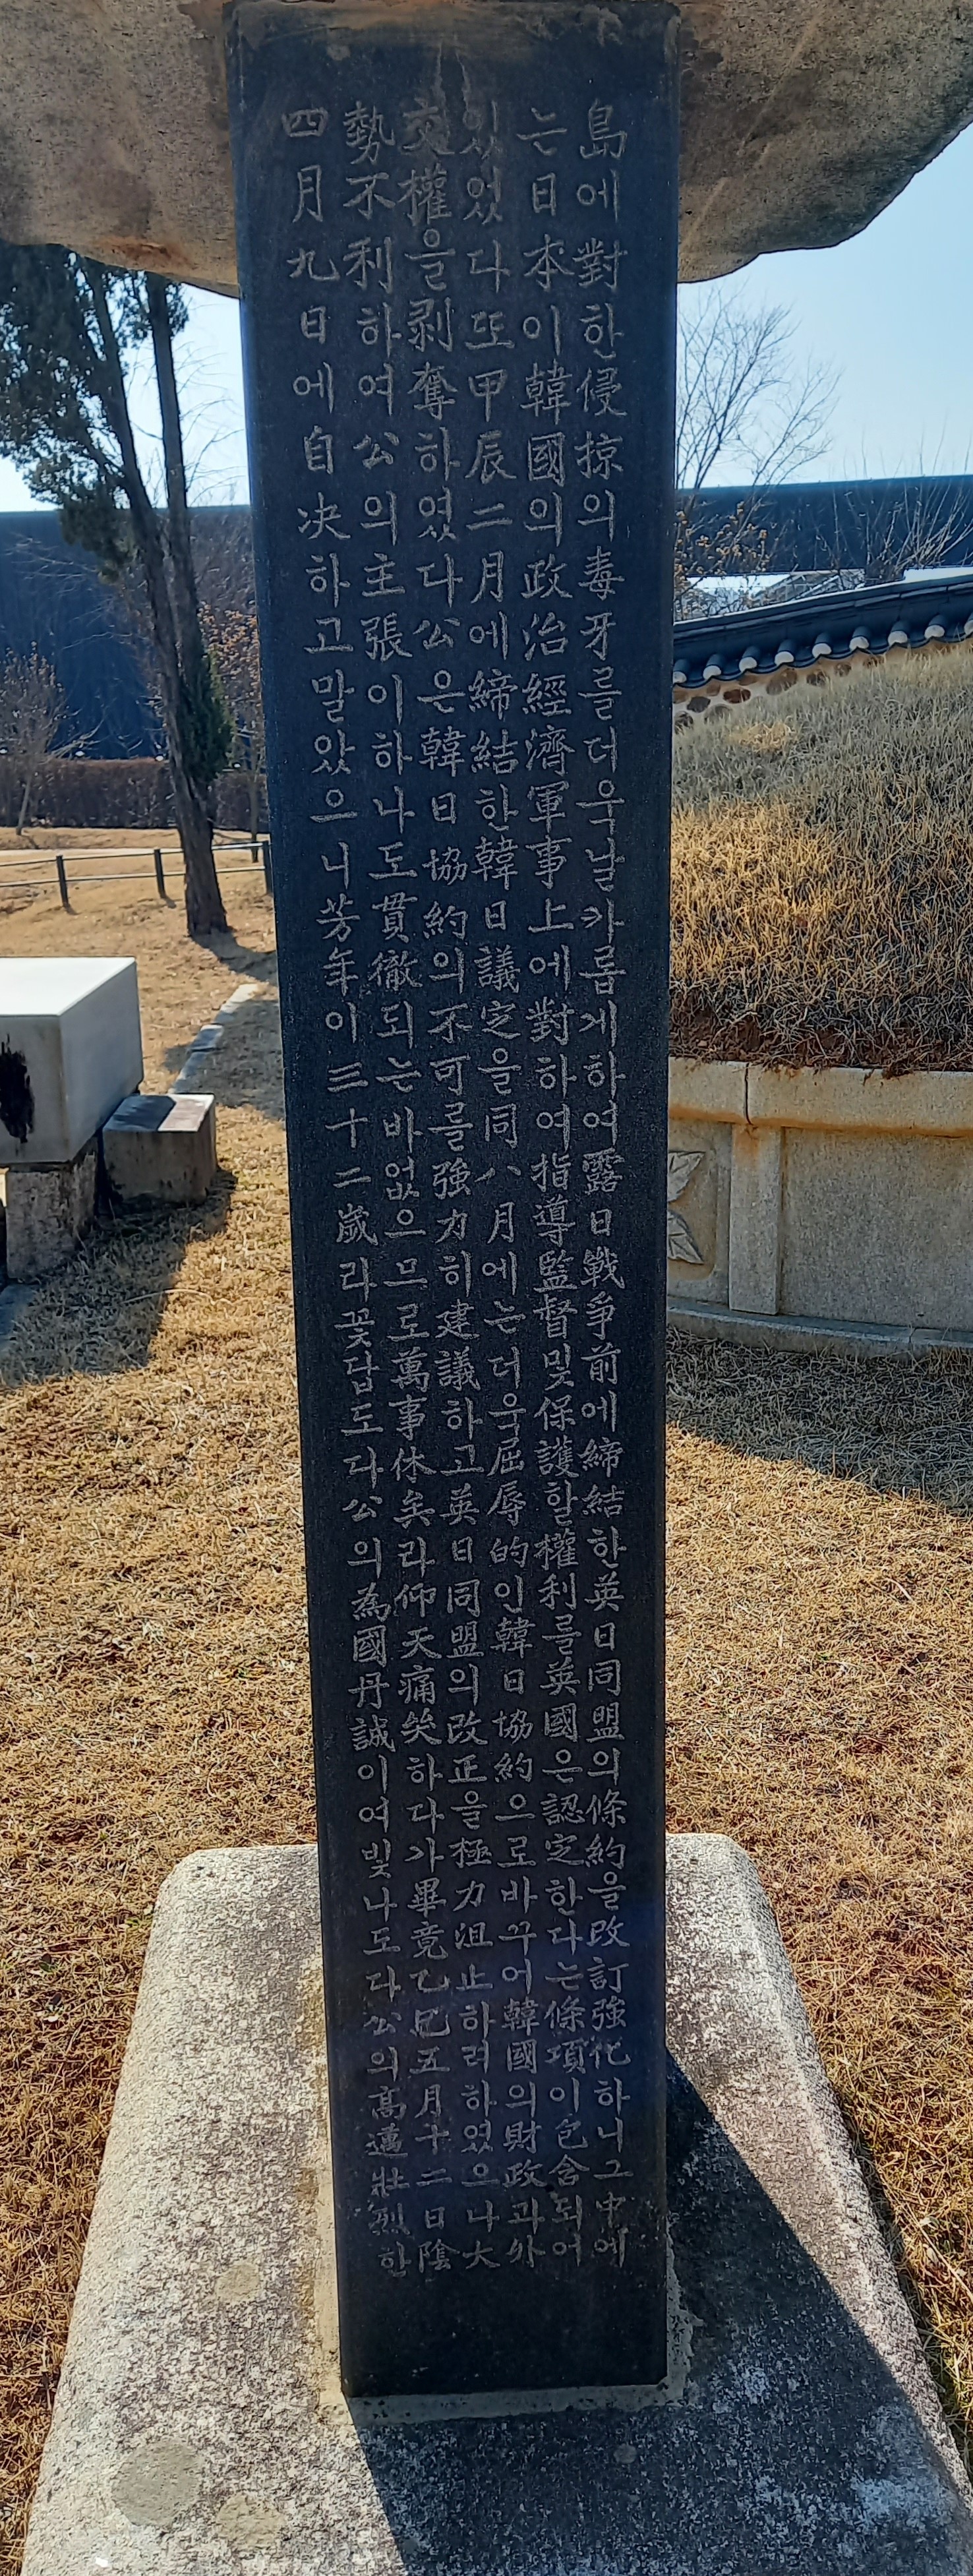 島에對한侵掠의毒牙를더욱날카롭게하여露日戰爭前에締結한英日同盟의條約을改訂強化하니그中에
는日本이韓國의政治經濟軍事上에對하여指導監督및保護할權利를英國은認定한다는條項이包含되어
있었다또甲辰二月에締結한韓日議定을同八月에는더욱屈辱的인韓日協約으로바꾸어韓國의財政과外
交權을剥奪하였다公은韓日協約의不可를強力히建議하고英日同盟의改正을極力沮止하려하였으나大
勢不利하여公의主張이하나도貫徹되는바없으므로萬事休矣라仰天痛哭하다가畢竟乙巳五月十二日陰
四月九日에自决하고말았으니芳年이三十二歲라꽃답도다公의為國丹誠이여빛나도다公의高邁壯烈한